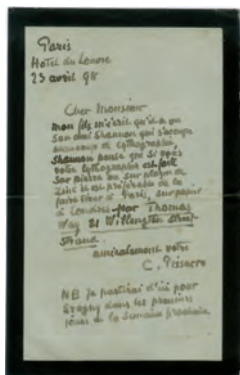 Paris
Hotel du Louvre
23 avril 98
Cher Monsieur
mon fils m'écrit qu'il a vu
son ami Shannon qui s'occupe
beaucoup de lythographie,
Shannon pense que si vous
votre lythographie est fait
sur pierre ou sur plaque de
Zinc il est préférable de la
faire tirer à Paris, sur papier
à Londres par Thomas
Way 21 Willington Street
Strand.
amicalement votre
C. Pissarro
NB Je partirai d'ici pour
Eragny dans les premiers
jours de la semaine prochaine